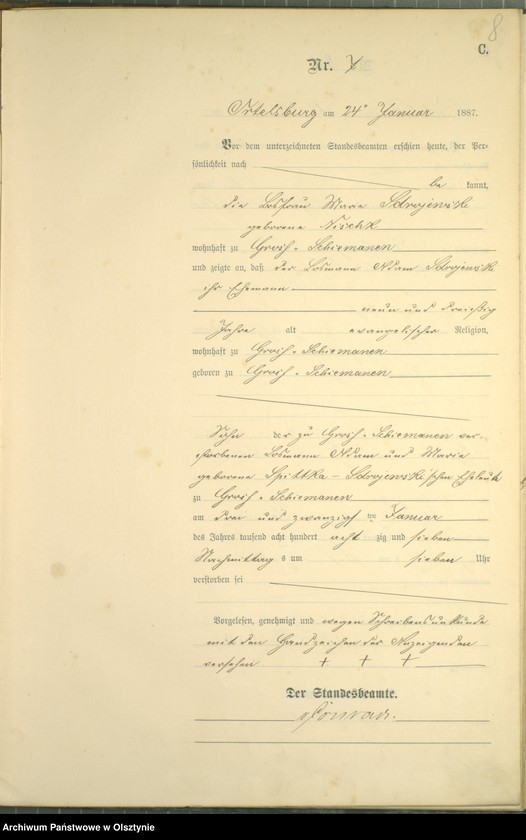 8
C.
Nr. 7
Ortelsburg am 24ⁿ Januar 1887.
Vor dem unterzeichneten Standesbeamten erschien heute, der Per-
sönlichkeit nach
be kannt,
die Losfrau Marie Sdrojewski
geborene Nischk
wohnhaft zu Groß-Schiemanen
und zeigte an, daß der Losmann Adam Sdrojewski
ihr Ehemann
neun und dreißig
Jahre alt evangelischer Religion,
wohnhaft zu Groß-Schiemanen
geboren zu Groß-Schiemanen
Sohn der zu Groß-Schiemanen ver-
storbenen Losmann Adam und Marie
geborene Spittka-Sdrojewski'schen Eheleute
zu Groß-Schiemanen
am drei und zwanzigsten Januar
des Jahres tausend acht hundert acht zig und sieben
Nachmittag s um sieben Uhr
verstorben sei
Vorgelesen, genehmigt und wegen Schreibensunkunde
mit den Handzeichen der Anzeigenden
versehen + + +
Der Standesbeamte.
Archiwum Państwowe w Olsztynie